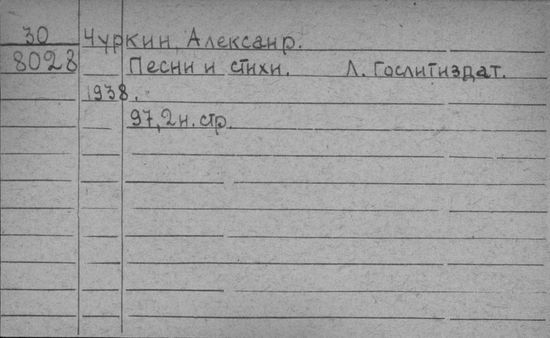 30 Чуркин, Алексанр.
8028 Песни и стихи. Л. Гослитиздат.
1938.
97,2 н. стр.